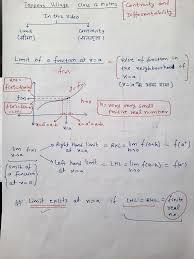 Class 12 Maths
Continuity and
Differentiability
In this video
Limit
Continuity
(सीमा)
Limit of a function at x=a = Value of function in
f(x)
the neighbourhood of
x=a
h>0
h = very very small
positive real number
x=a-h
x=a
x=a+h
lim f(x)
x→a
Right hand limit at x=a = RHL = lim f(a+h) = f(a⁺)
h→0
Limit of
a function
at x=a
Left hand limit at x=a = LHL = lim f(a-h) = f(a⁻)
h→0
Limit exists at x=a if LHL = RHL = finite
real
no.